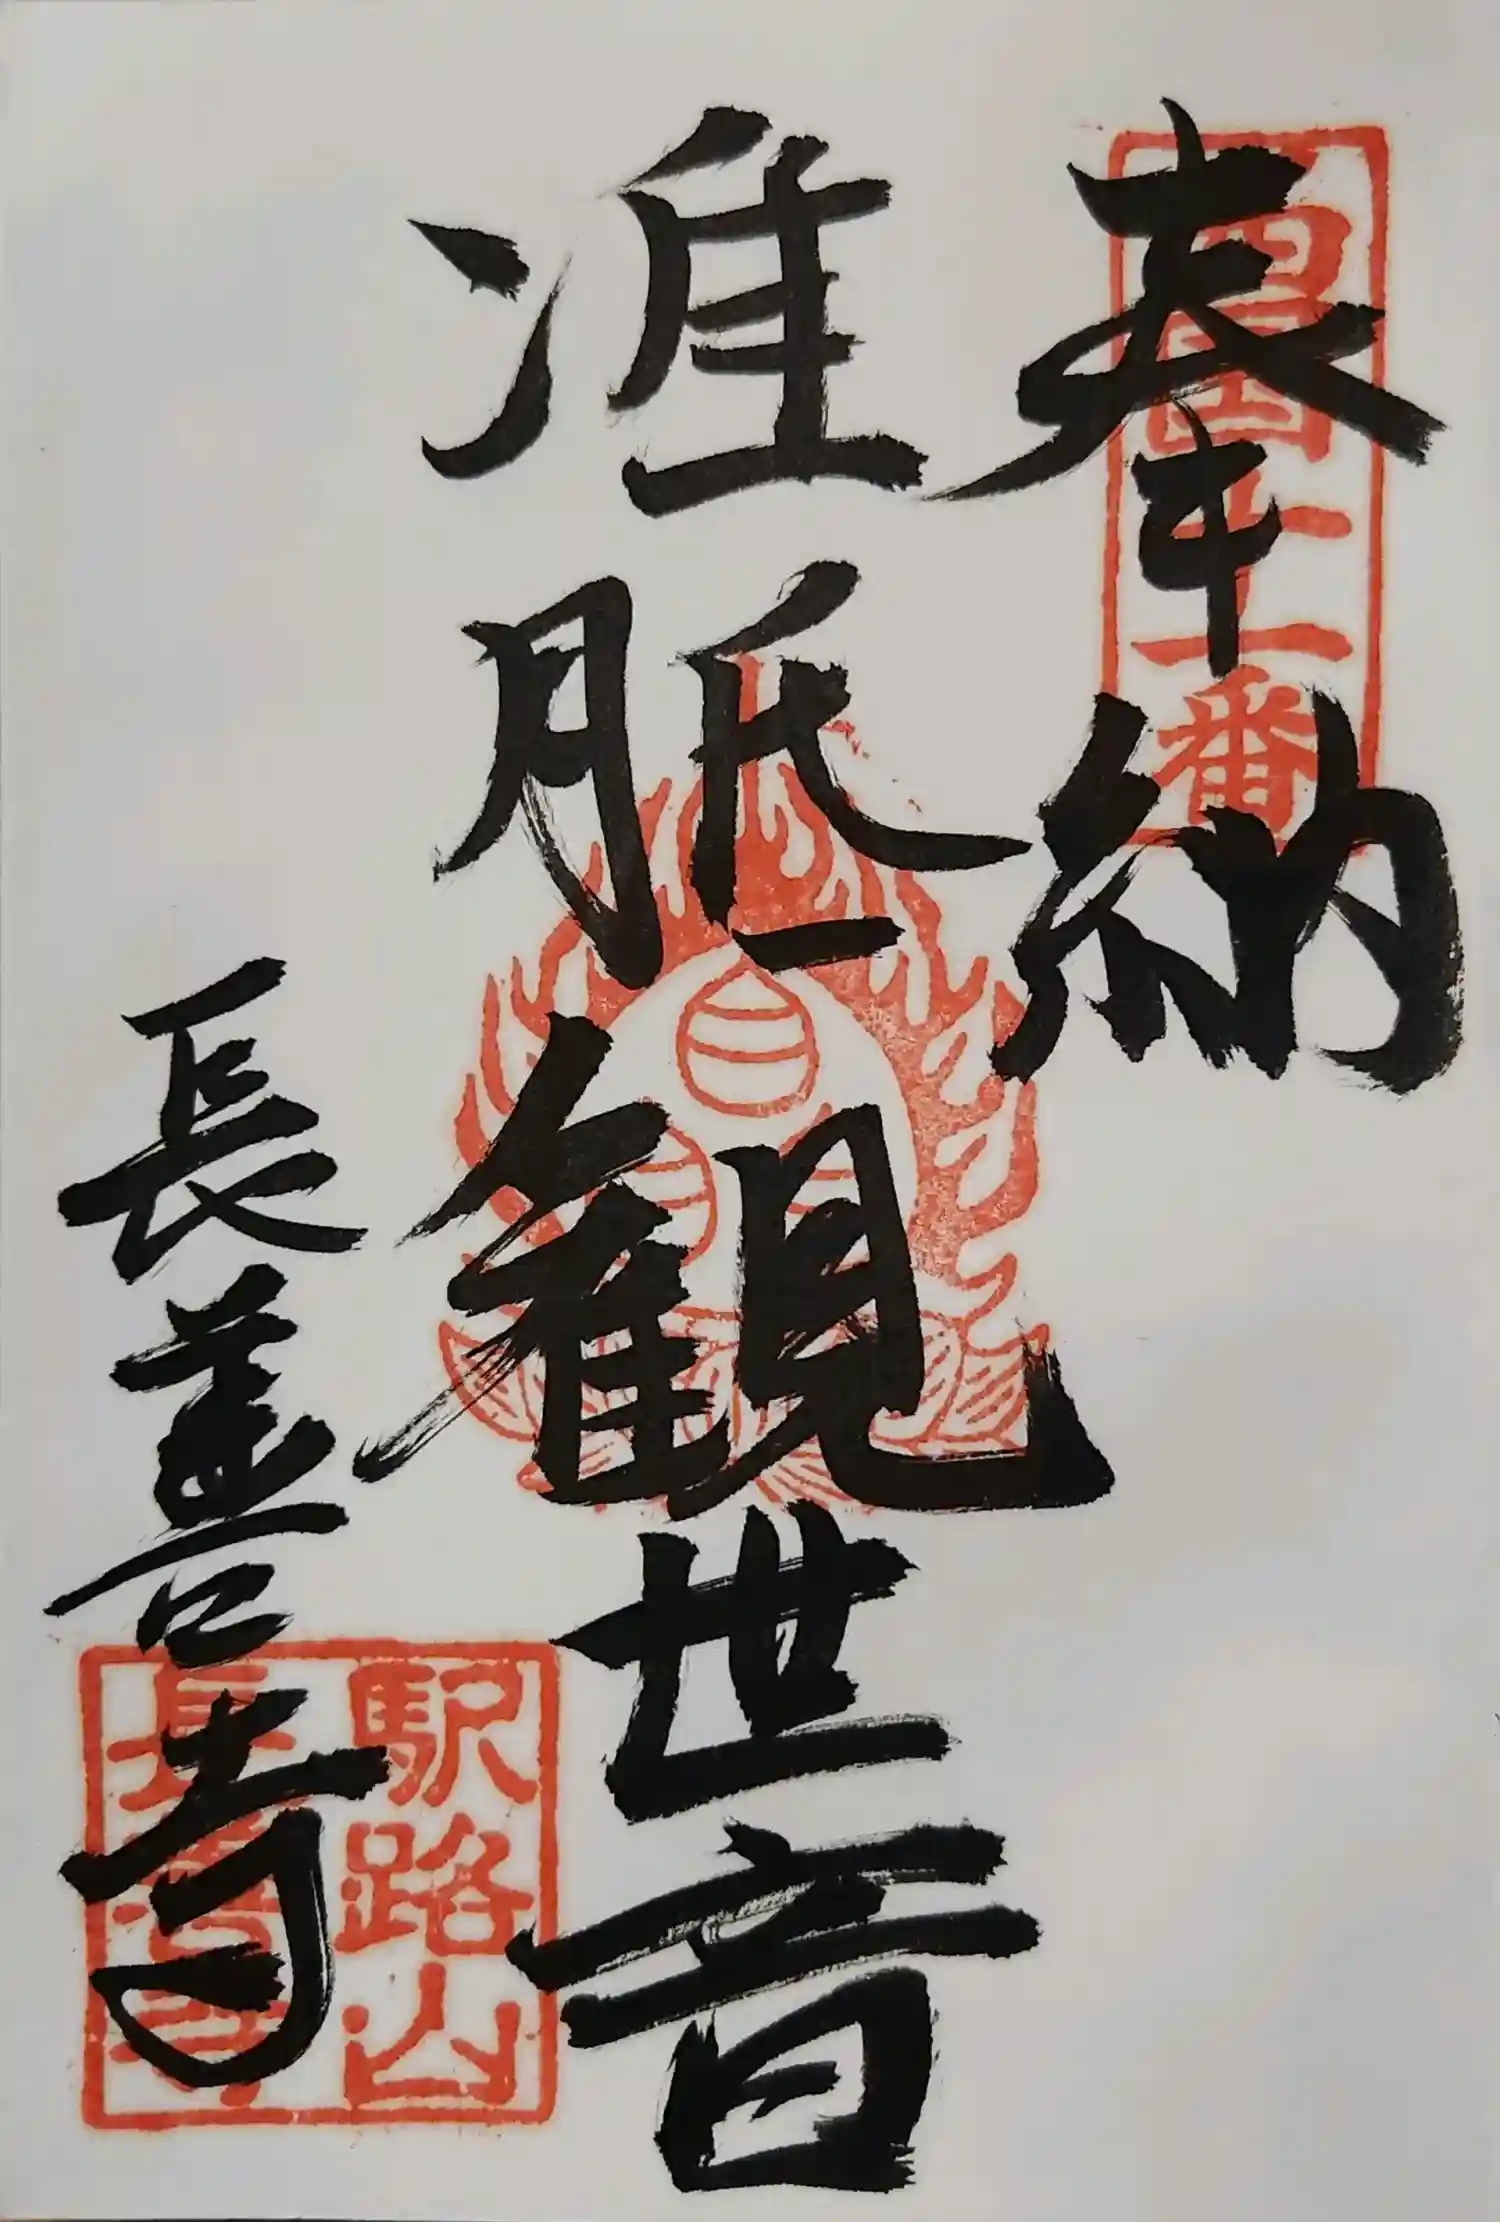 奉納
四十一番
准胝観世音
長善寺
駅路山
長善寺